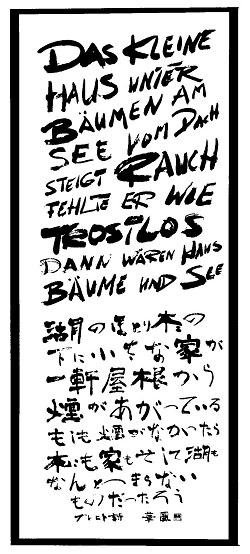 DAS KLEINE
HAUS UNTER
BÄUMEN AM
SEE VOM DACH
STEIGT RAUCH
FEHLTE ER WIE
TROSTLOS
DANN WÄREN HAUS
BÄUME UND SEE
湖のほとり木の
下に小さな家が
一軒屋根から
煙があがっている
もしも煙がなかったら
木も家もそして湖も
なんとつまらない
ものだったろう
ブレヒト詩